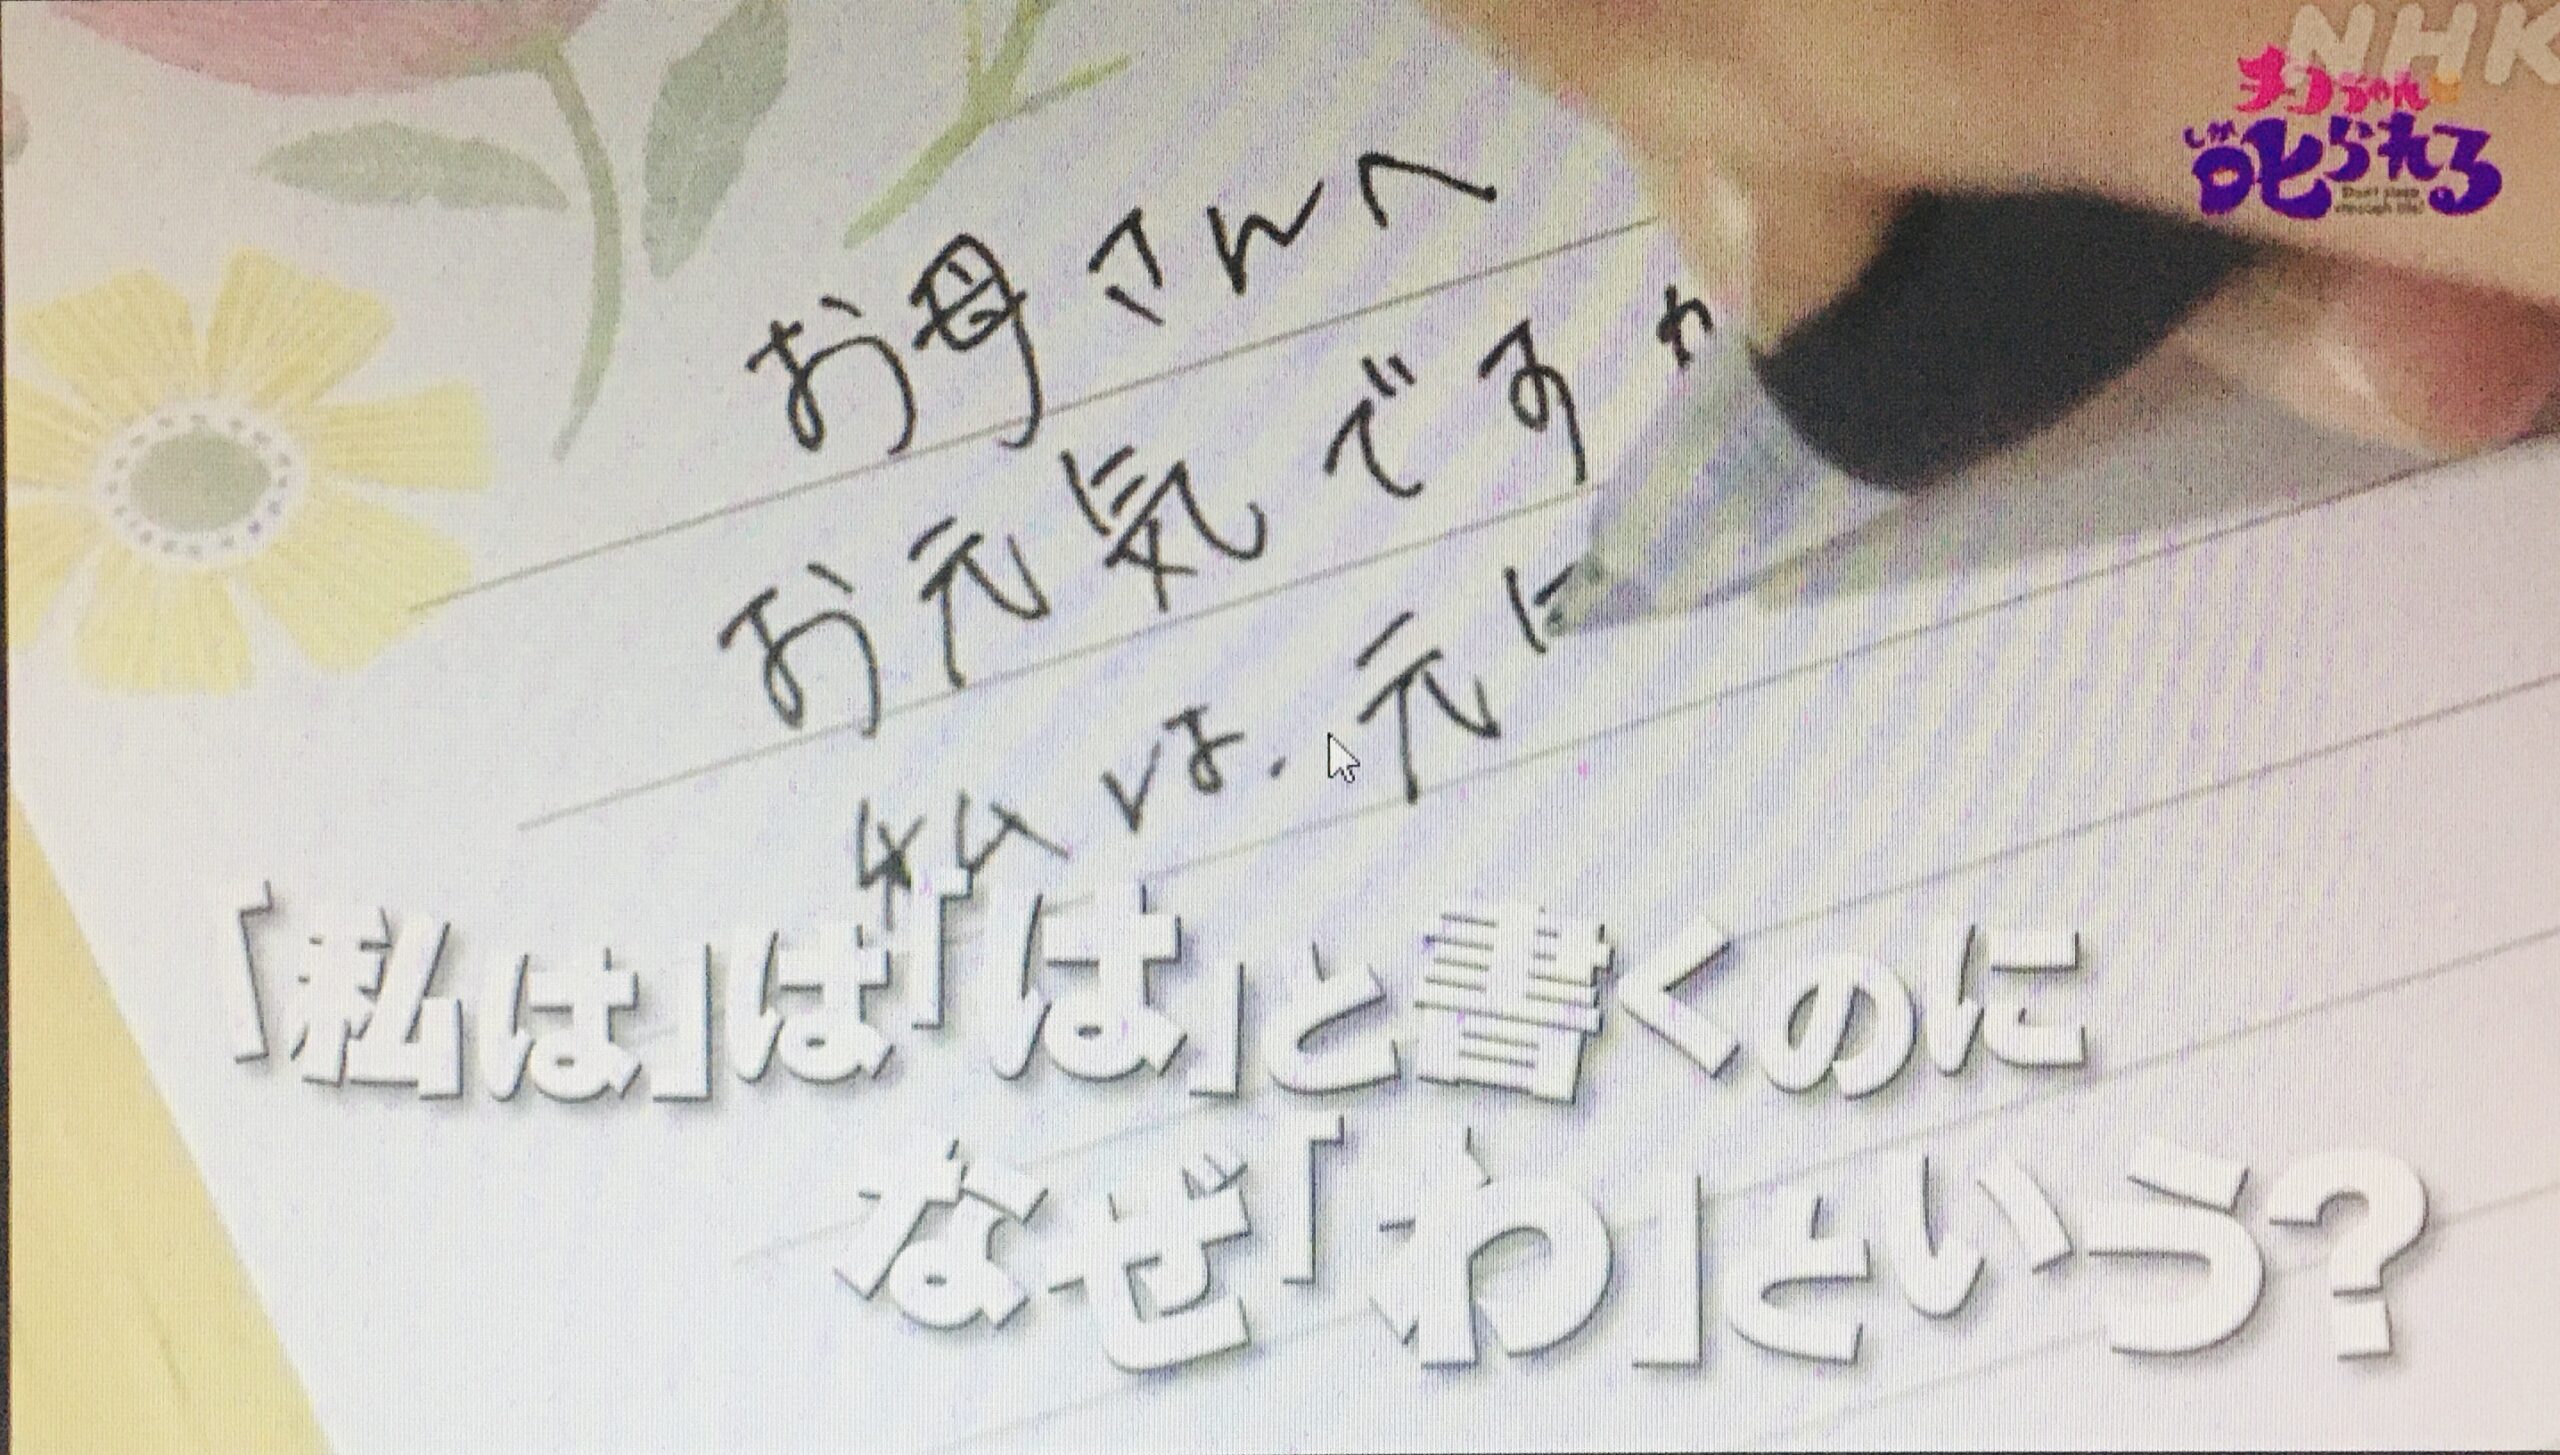 NHK
チコちゃんに
しか
叱られる
Don't sleep
through life!
お母さんへ
お元気ですか
私は、元
「私は」は「は」と書くのに
なぜ「わ」という?